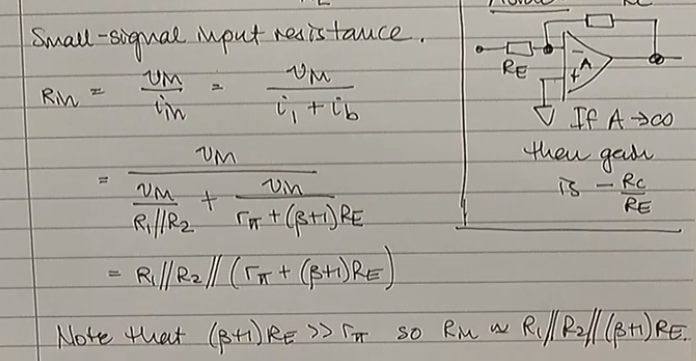 Small-signal input resistance.
Rin = vin / iin = vin / (i1 + ib)
= vin / (vin / (R1//R2) + vin / (rπ + (β+1)RE))
= R1//R2//(rπ + (β+1)RE)
Note that (β+1)RE >> rπ so Rin ≈ R1//R2//(β+1)RE.
RE
−
A
+
If A→∞
then gain
is −RC/RE